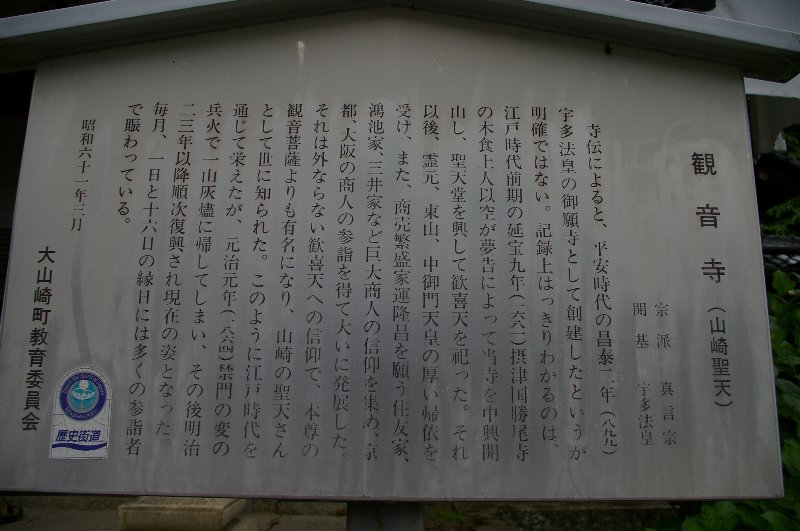 観音寺（山崎聖天）
宗派　真言宗
開基　宇多法皇
寺伝によると、平安時代の昌泰二年（八九九）
宇多法皇の御願寺として創建したというが
明確ではない。記録上はっきりわかるのは、
江戸時代前期の延宝九年（一六八一）摂津国勝尾寺
の木食上人以空が夢告によって当寺を中興開
山し、聖天堂を興して歓喜天を祀った。それ
以後、霊元、東山、中御門天皇の厚い帰依を
受け、また、商売繁盛家運隆昌を願う住友家、
鴻池家、三井家など巨大商人の信仰を集め、京
都、大阪の商人の参詣を得て大いに発展した。
それは外ならない歓喜天への信仰で、本尊の
観音菩薩よりも有名になり、山崎の聖天さん
として世に知られた。このように江戸時代を
通じて栄えたが、元治元年（一八六四）禁門の変の
兵火で一山灰燼に帰してしまい、その後明治
二三年以降順次復興され現在の姿となった。
毎月、一日と十六日の縁日には多くの参詣者
で賑わっている。
昭和六十一年三月
大山崎町教育委員会
歴史街道